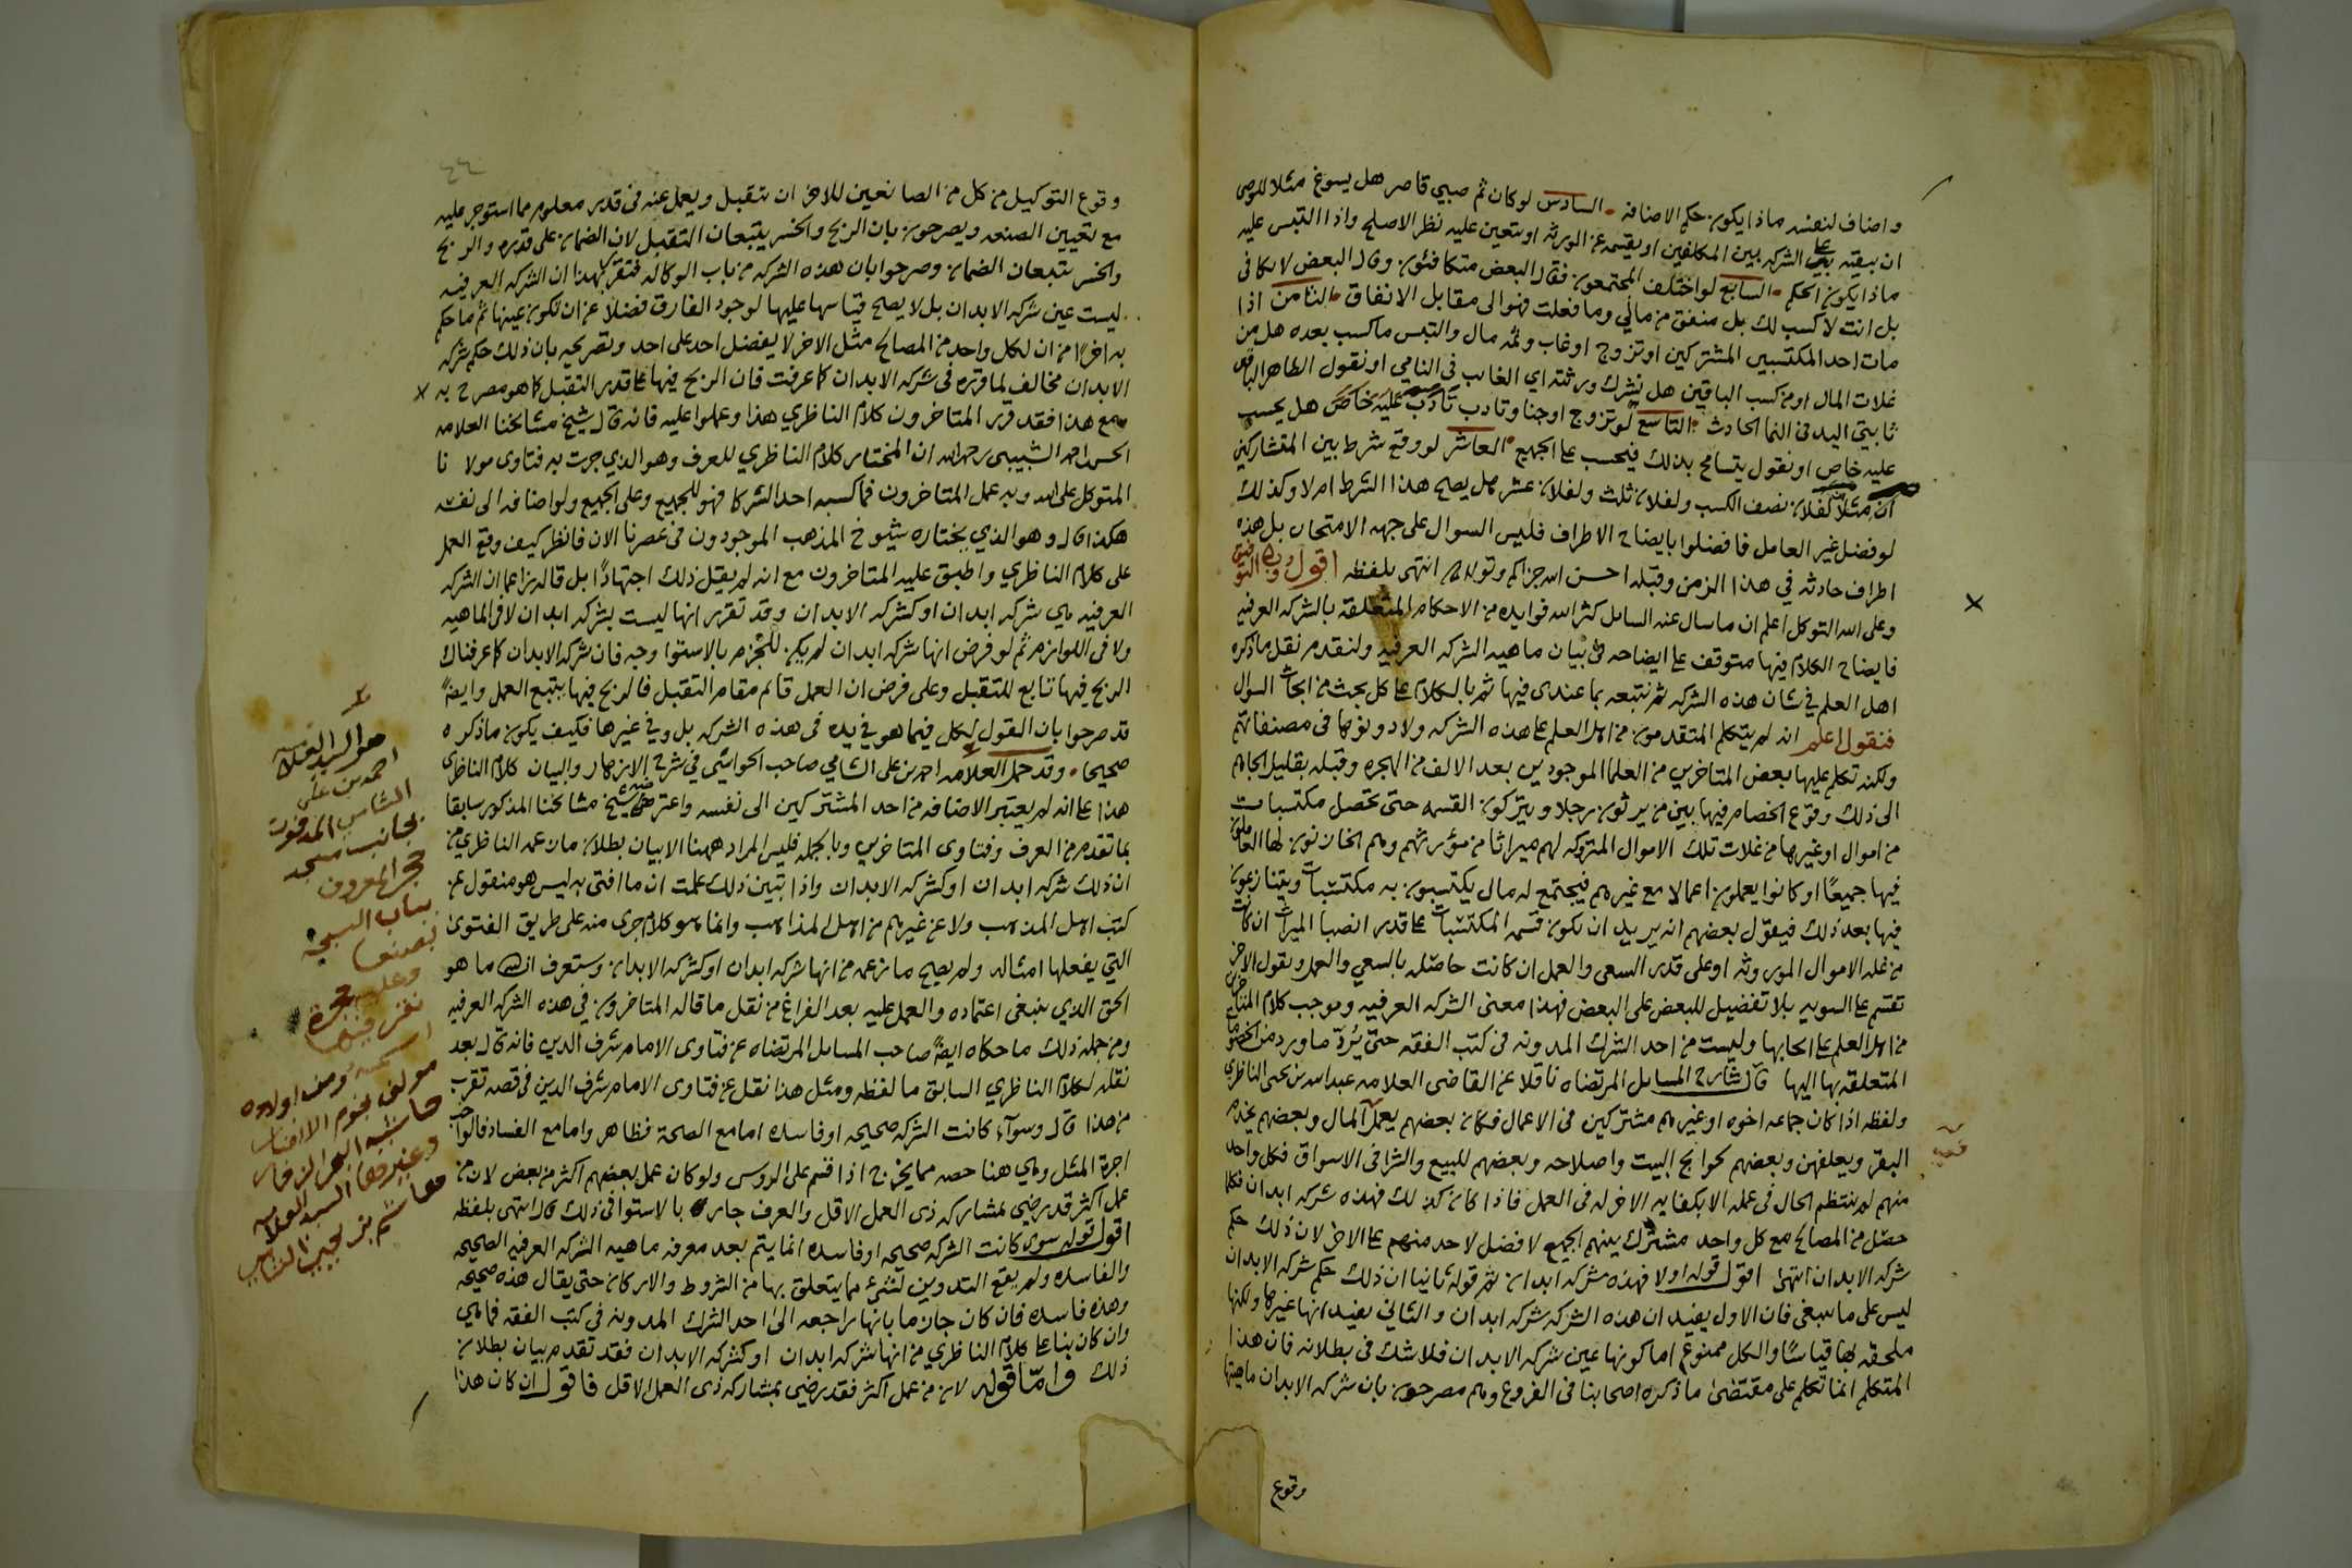 واضاف لنفسه ماذا يكون حكم الاضافه السادس لو كان ثم صبي قاصر هل يسوغ مثلا للوصى
ان يبقيه على الشركه بين المكلفين او يقسمه عن الورثه او يتعين عليه نظر الاصلح واذا التبس عليه
ماذا يكون الحكم السابع لو اختلف المجتمعون فقال البعض متكافئون وقال البعض لا تكافى
بل انت لا كسب لك بل منفق من مالي وما فعلت فهو الى مقابل الانفاق الثامن اذا
مات احد المكتسبين المشتركين او تزوج او غاب وثمه مال والتبس ما كسب بعده هل من
غلات المال او من كسب الباقين هل نشرك ورثته اي الغائب في النامي او نقول الظاهر الباقى
ثابتي اليد في النما الحادث التاسع لو تزوج او جنا وتادب تأدب عليه خاص هل يحسب
عليه خاص او نقول يتسامح بذلك فيحسب على الجميع العاشر لو وقع شرط بين المتشاركين
ان مثلا لفلان نصف الكسب ولفلان ثلث ولفلان عشر هل يصح هذا الشرط ام لا وكذلك
لو فضل غير العامل فافضلوا بايضاح الاطراف فليس السوال على جهه الامتحان بل هذه
اطراف حادثه في هذا الزمن وقبله احسن الله جزاكم وتولاكم انتهى بلفظه اقول وبالله التوفيق
وعلى الله التوكل اعلم ان ما سال عنه السايل كثر الله فوايده من الاحكام المتعلقه بالشركه العرفيه
فايضاح الكلام فيها متوقف على ايضاحه في بيان ماهيه الشركه العرفيه ولنقدم نقل ما ذكره
اهل العلم في شان هذه الشركه ثم نتبعه بما عندي فيها ثم بالكلام على كل بحث من ابحاث السوال
فنقول اعلم انه لم يتكلم المتقدمون من اهل العلم على هذه الشركه ولا دونوها في مصنفاتهم
ولكنه تكلم عليها بعض المتاخرين من العلما الموجودين بعد الالف من الهجره وقبله بقليل الجاهم
الى ذلك وقوع الخصام فيها بين من يرثون رجلا ويتركون القسمه حتى تحصل مكتسبات
من اموال او غيرها من غلات تلك الاموال المتروكه لهم ميراثا من مؤرثهم وهم الخازنون لها العاملون
فيها جميعًا او كانوا يعملون اعمالا مع غيرهم فيجتمع له مال يكتسبون به مكتسبات ويتنازعون
فيها بعد ذلك فيقول بعضهم انه يريد ان تكون قسمه المكتسبات على قدر انصبا الميراث ان كانت
من غله الاموال الموروثه او على قدر السعى والعمل ان كانت حاصله بالسعي والعمل ويقول الاخر
تقسم على السويه بلا تفضيل للبعض على البعض فهذا معنى الشركه العرفيه وموجب كلام المتاخرين
من اهل العلم على احكامها وليست من احد الشرك المدونه في كتب الفقه حتى يرد ما ورد من الخصومات
المتعلقه بها اليها قال شارح المسايل المرتضاه ناقلا عن القاضى العلامه عبد الله بن يحيى الناظري
ولفظه اذا كان جماعه اخوه او غيرهم مشتركين في الاعمال فكان بعضهم يعمل المال وبعضهم يخدم
البقر ويعلفهن وبعضهم لحوايج البيت واصلاحه وبعضهم للبيع والشرا في الاسواق فكل واحد
منهم لم ينتظم الحال في عمله الا بكفايه الاخر له في العمل فاذا كان كذلك فهذه شركه ابدان فكلما
حصل من المصالح مع كل واحد مشترك بينهم الجميع لا فضل لاحد منهم على الاخر لان ذلك حكم
شركه الابدان انتهى اقول قوله اولا فهذه شركه ابدان ثم قوله ثانيا ان ذلك حكم شركه الابدان
ليس على ما ينبغي فان الاول يفيد ان هذه الشركه شركه ابدان والثاني يفيد انها غيرها ولكنها
ملحقه بها قياسًا والكل ممنوع اما كونها عين شركه الابدان فلا شك في بطلانه فان هذا
المتكلم انما تكلم على مقتضى ما ذكره اصحابنا في الفروع وهم مصرحون بان شركه الابدان ماهيتها
وقوع
٤٤
وقوع التوكيل من كل من الصانعين للاخر ان يتقبل ويعمل عنه في قدر معلوم مما استوجر عليه
مع تعيين الصنعه ويصرحون بان الربح والخسر يتبعان التقبل لان الضمان على قدره والربح
والخسر يتبعان الضمان وصرحوا بان هذه الشركه من باب الوكاله فتقرر بهذا ان الشركه العرفيه
ليست عين شركه الابدان بل لا يصح قياسها عليها لوجود الفارق فضلا عن ان تكون عينها ثم ما حكم
به اخرًا من ان لكل واحد من المصالح مثل الاخر لا يفضل احد على احد وتصريحه بان ذلك حكم شركه
الابدان مخالف لما قرره في شركه الابدان كما عرفت فان الربح فيها على قدر التقبل كما هو مصرح به
ومع هذا فقد قرر المتاخرون كلام الناظري هذا وعملوا عليه فانه قال شيخ مشائخنا العلامه
الحسن احمد الشبيبى رحمه الله ان المختار كلام الناظري للعرف وهو الذي جرت به فتاوى مولانا
المتوكل على الله وبه عمل المتاخرون فما كسبه احد الشركا فهو للجميع وعلى الجميع ولو اضافه الى نفسه
هكذا قال وهو الذي يختاره شيوخ المذهب الموجودون في عصرنا الان فانظر كيف وقع العمل
على كلام الناظري واطبق عليه المتاخرون مع انه لم يقل ذلك اجتهادًا بل قاله زاعما ان الشركه
العرفيه هي شركه ابدان او كشركه الابدان وقد تقرر انها ليست بشركه ابدان لا في الماهيه
ولا في اللوازم ثم لو فرض انها شركه ابدان لم يكن للجزم بالاستوا وجه فان شركه الابدان كما عرفناك
الربح فيها تابع للتقبل وعلى فرض ان العمل قائم مقام التقبل فالربح فيها يتبع العمل وايضًا
قد صرحوا بان القول لكل فيما هو في يده في هذه الشركه بل وفي غيرها فكيف يكون ما ذكره
صحيحا وقد حمل العلامه احمد بن علي الشامي صاحب الحواشي في شرح الازهار والبيان كلام الناظري
هذا على انه لم يعتبر الاضافه من احد المشتركين الى نفسه واعترضه شيخ مشائخنا المذكور سابقا
بما تقدم من العرف وفتاوى المتاخرين وبالجمله فليس المراد ههنا الا بيان بطلان ما زعمه الناظري من
ان ذلك شركه ابدان او كشركه الابدان واذا تبين ذلك علمت ان ما افتى به ليس هو منقول عن
كتب اهل المذهب ولا عن غيرهم من اهل المذاهب وانما هو كلام جرى منه على طريق الفتوى
التي يفعلها امثاله ولم يصح ما زعمه من انها شركه ابدان او كشركه الابدان وستعرف ان شاء الله ما هو
الحق الذي ينبغي اعتماده والعمل عليه بعد الفراغ من نقل ما قاله المتاخرون في هذه الشركه العرفيه
ومن جمله ذلك ما حكاه ايضًا صاحب المسايل المرتضاه عن فتاوى الامام شرف الدين فانه قال بعد
نقله لكلام الناظري السابق ما لفظه ومثل هذا نقل عن فتاوى الامام شرف الدين في قصه تقرب
من هذا قال وسوآء كانت الشركه صحيحه او فاسده اما مع الصحة فظاهر واما مع الفساد فالواجب
اجرة المثل وهي هنا حصه مما يخرج اذا قسم على الروس ولو كان عمل بعضهم اكثر من بعض لان من
عمل اكثر قد رضي بمشاركه ذى العمل الاقل والعرف جار بالاستوا في ذلك قال انتهى بلفظه
اقول قوله سوى كانت الشركه صحيحه او فاسده انما يتم بعد معرفه ماهيه الشركه العرفيه الصحيحه
والفاسده ولم يقع التدوين لشيء مما يتعلق بها من الشروط والاركان حتى يقال هذه صحيحه
وهذه فاسده فان كان جازما بانها راجعه الى احد الشرك المدونه في كتب الفقه فما هي
وان كان بنا على كلام الناظري من انها شركه ابدان او كشركه الابدان فقد تقدم بيان بطلان
ذلك وامّا قوله لان من عمل اكثر فقد رضي بمشاركه ذى العمل الاقل فاقول ان كان هذا
هو السيد العلامه
احمد بن علي
الشامي المدفون
بجانب مسجد
حجر المعروف
بباب السبحه
بصنعا
وعليه حجرة
نقر فيها
اسمه ومن اولاده
مولف نجوم الانظار
حاشيه البحر الزخار
وغيرها السيد العلامه
هاشم بن يحيى الشامي